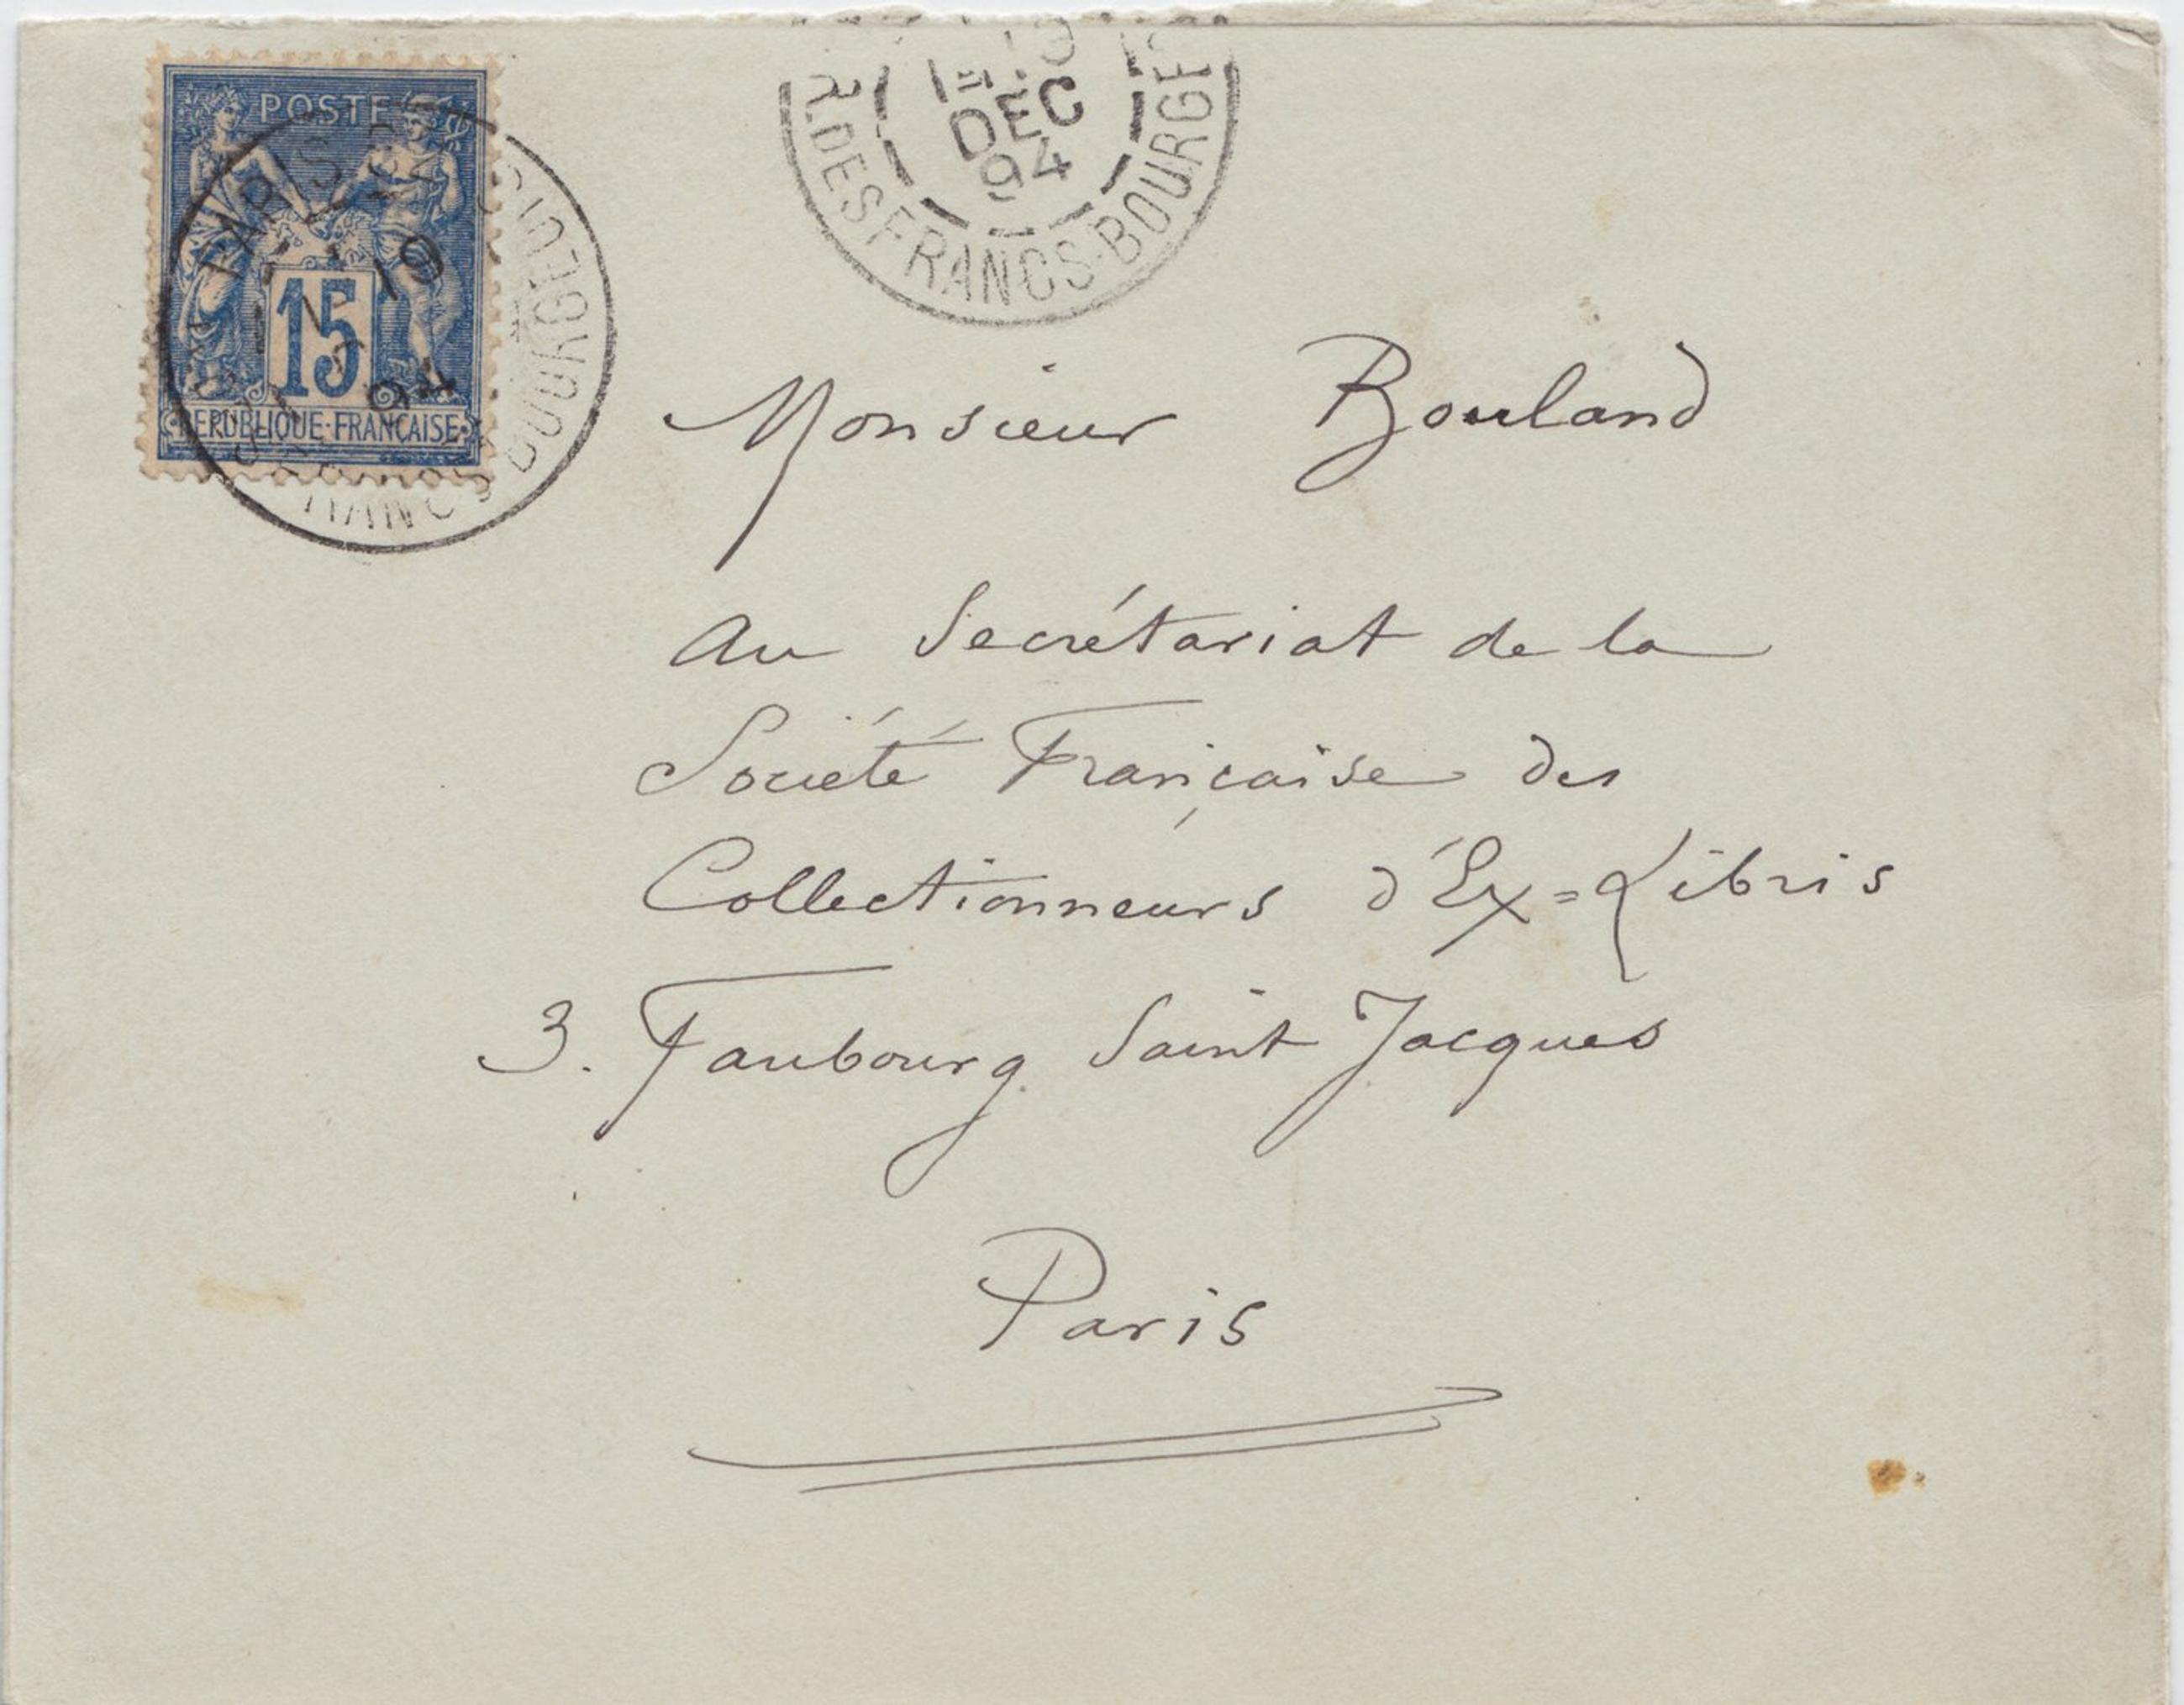 POSTE
15
REPUBLIQUE·FRANÇAISE
PARIS
19
94
DEC
94
R. DES FRANCS-BOURGE
Monsieur Bouland
au Secrétariat de la
Société Française des
Collectionneurs d'Ex=Libris
3. Faubourg Saint Jacques
Paris